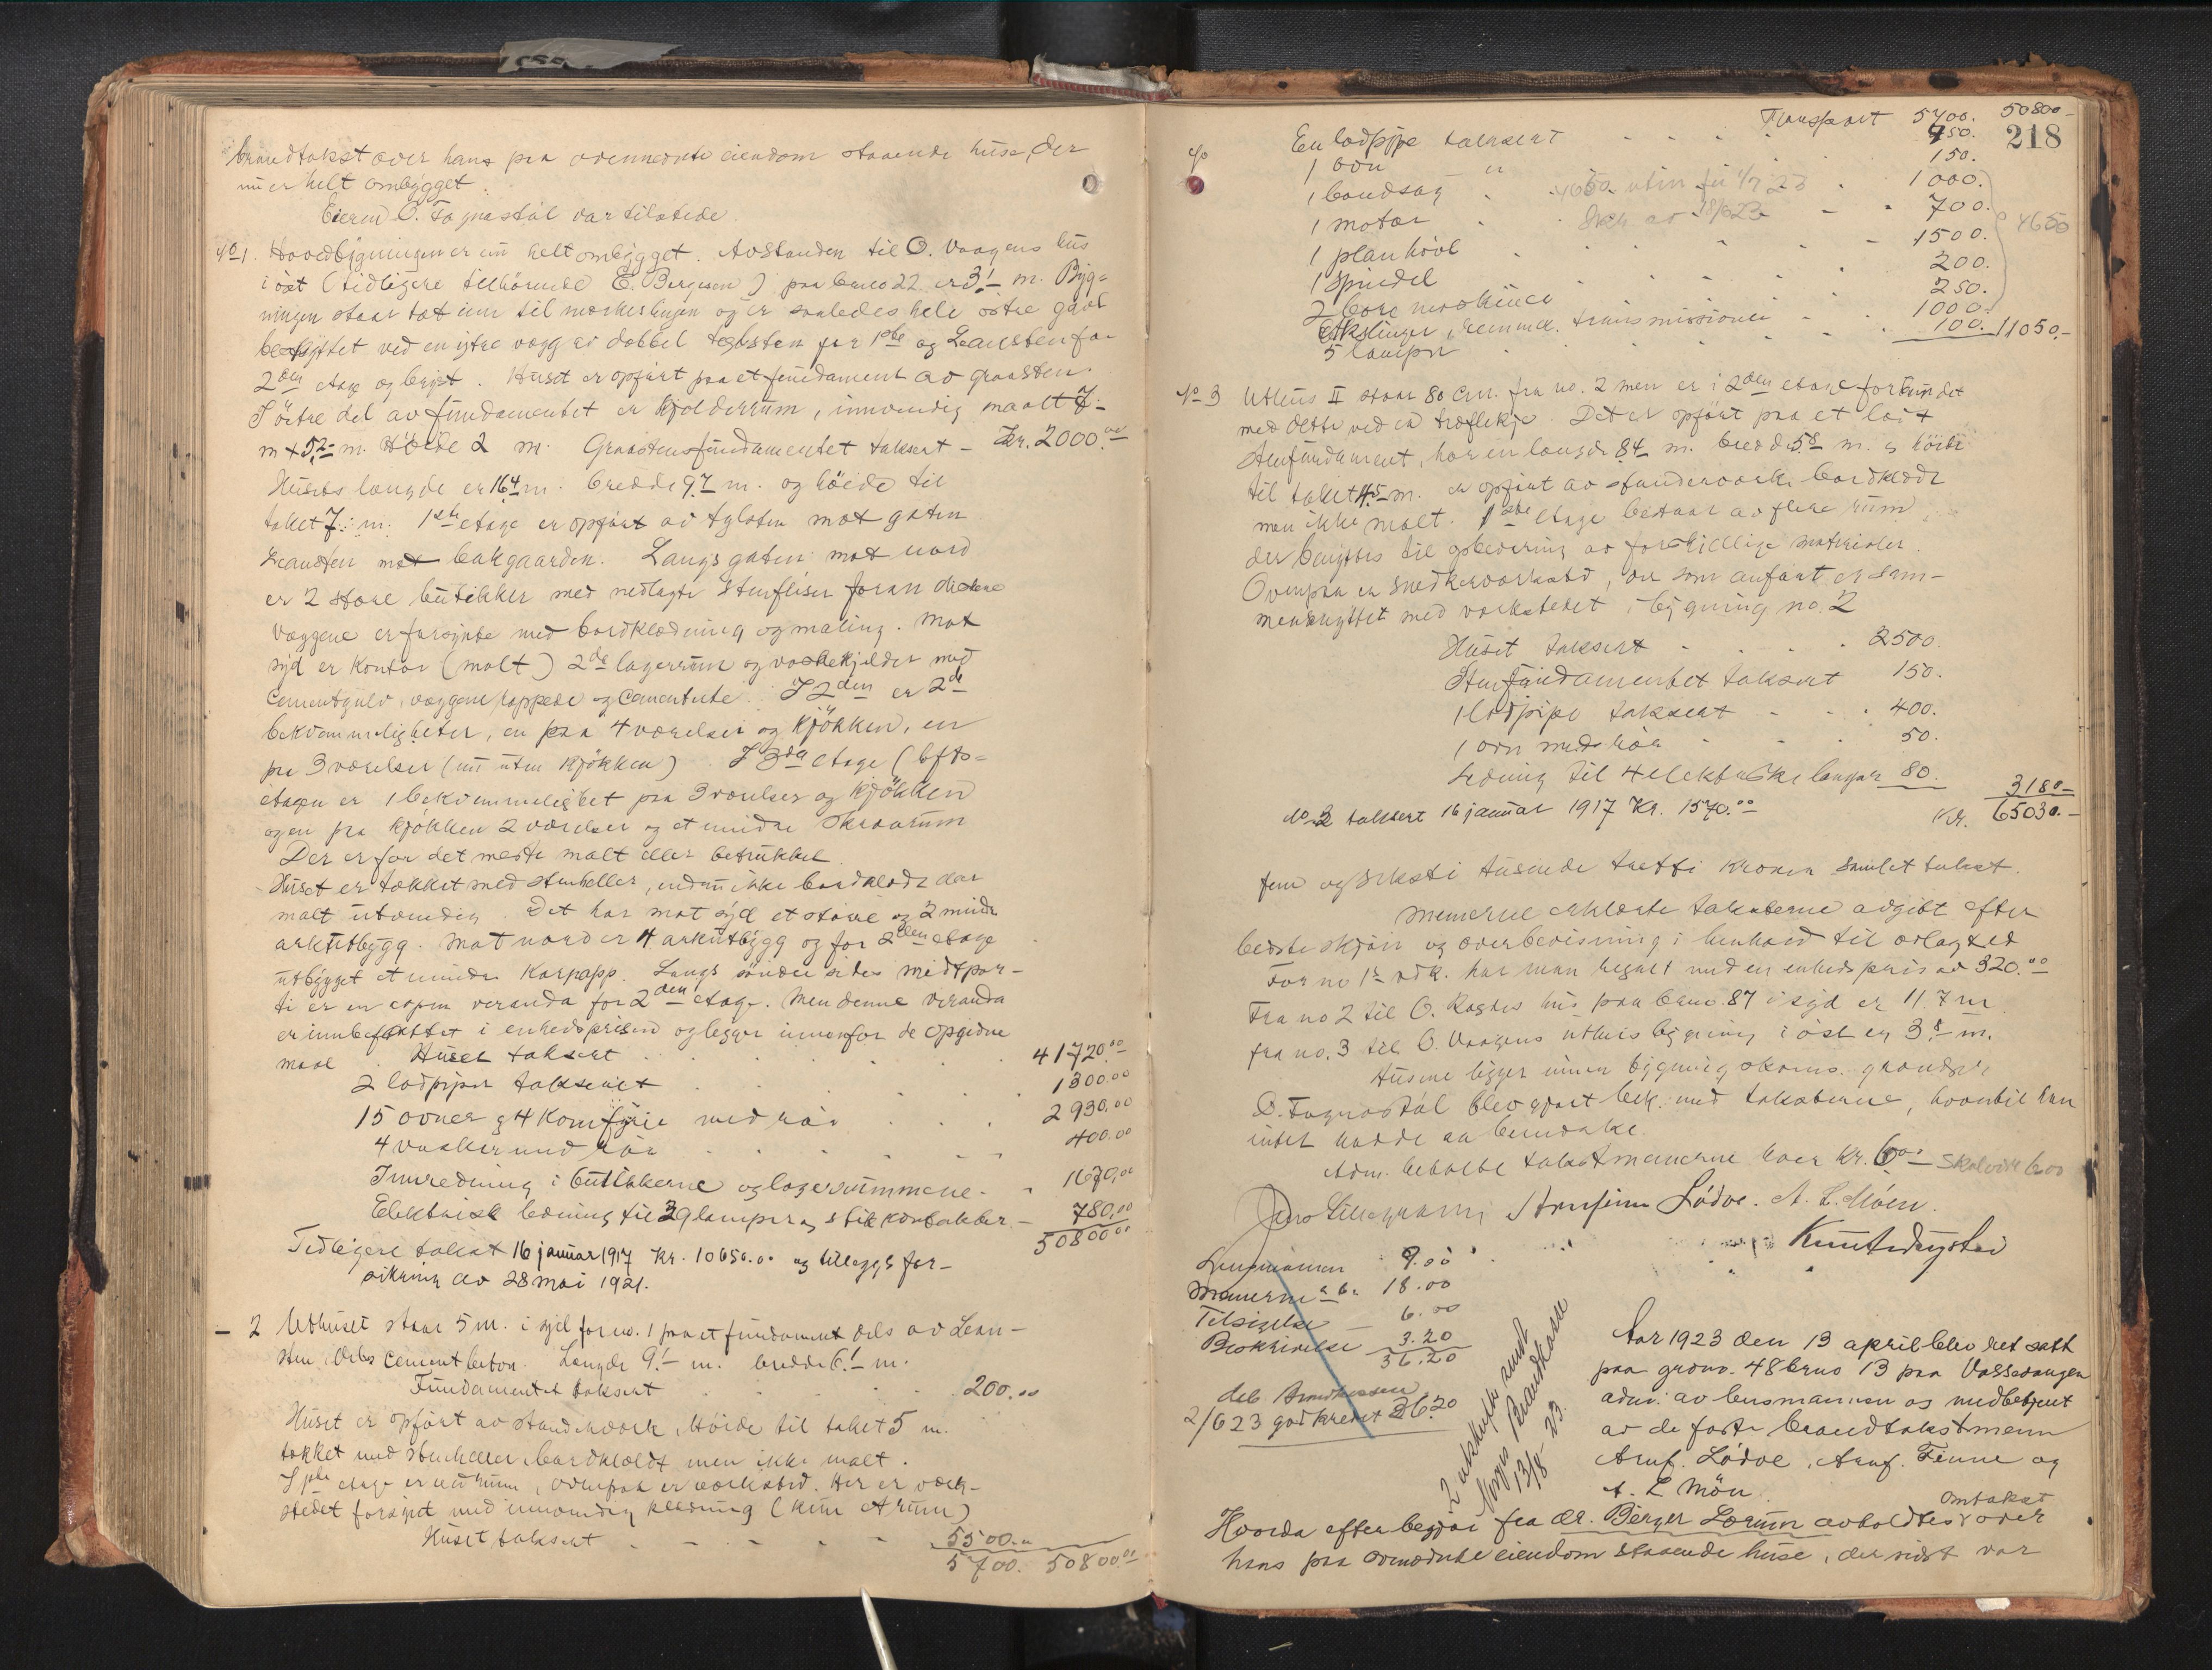 brandtakst over hans paa ovennevnte eiendom staaende huse, der
nu er helt ombygget.
Eieren O. Fagnastøl var tilstede.
No 1. Hovedbygningen er nu helt ombygget. Avstanden til O. Vaagens hus
i øst (tidligere tilhørende E. Bergesen) paa bruno 22 er 3,1 m. Byg-
ningen staar tæt inn til merkeslinjen og er saaledes hele østre gavl
beskyttet ved en ytre vægg av dobbel teglsten for 1ste og Leansten for
2den etage og brøst. Huset er opført paa et fundament av graasten.
I østre del av fundamentet er kjælderrum, innvendig maalt 7.-
m x 5,2 m. Høide 2 m. Graastensfundamentet taksert - Kr. 2000.00
Husets længde er 16,4 m. bredde 9,7 m. og høide til
taket 7.- m. 1ste etage er opført av teglsten mot gaten
Leansten mot bakgaarden. Langs gaten mot nord
er 2 store butikker med nedlagte stenfliser foran disse
Væggene er forsynte med bordklædning og maling. Mot
syd er Kontor (malt) 2de lagerrum og vaskekjelder med
cementgulv, væggene pappede og cementerte. I 2den er 2de
bekvemmeligheter, en paa 4 værelser og kjøkken, en
paa 3 værelser (nu uten kjøkken). I 3dje etage (lofts-
etagen er 1 bekvemmelighet paa 3 værelser og kjøkken
og en paa kjøkken 2 værelser og et mindre skraarum
Der er for det meste malt eller betrukket.
Huset er tækket med stenheller, endnu ikke bordklædt eller
malt utvendig. Det har mot syd et større og 2 mindre
arkutbygg. Mot nord er 4 arkutbygg og for 2den etage
utbygget et mindre Karnapp. Langs søndre sides midtpar-
ti er en aapen veranda for 2den etage. Men denne veranda
er innbefattet i enhedsprisen og ligger innenfor de opgivne
maal. Huset taksert 41720.00
2 ladpiper taksert 1300.00
15 ovner og 4 Komfyrer med rør 2930.00
4 vasker med rør 400.00
Innredning i butikkerne og lagerrummene - 1670.00
Elektrisk ledning til 39 lamper og stikkontakter - 780.00
50800.00
Tidligere takst 16 januar 1917 Kr. 10650.00 og tillegsfor-
sikring av 28 mai 1921.
- 2 Uthuset staar 5 m. i syd for no. 1 paa et fundament dels av Lean-
sten, dels cementbeton. Længde 9,1 m. bredde 6,1 m.
Fundamentet taksert 200.00
Huset er opført av stenderverk. Høide til taket 5 m.
tækket med stenheller bordklædt men ikke malt.
I 1ste etage er vedrum, ovenpaa er verksted. Her er verk-
stedet forsynt med innvendig klædning (kun et rum)
Huset taksert - - - - 5500.00
5700. 50800.00
Transport 5700. 50800-
218
En ladpipe taksert - - - 950.
1 ovn " 150.
1 bandsag 1000.
1 motor 700.
1 planhøvl 1500.
1 spindel 200.
2 bore maskiner 250.
Akslinger, remmer, transmissioner 1000.
5 lamper 100. 11050.-
4650
No 3 Uthus II staar 80 cm. fra no. 2 men er i 2den etage forbundet
med dette ved en træflekje. Det er opført paa et løst
stenfundament, har en længde 8,4 m. bredde 5,8 m. og høide
til taket 4,5 m. er opført av stenderverk bordklædt
men ikke malt. 1ste etage bestaar av flere rum
der benyttes til opbevaring av forskjellige materialer.
Ovenpaa er snedkerverksted, der som anført er sam-
menknyttet med verkstedet i bygning no. 2
Huset taksert - 2500.
Stenfundamentet taksert 150.
1 ladpipe taksert - - 400.
1 ovn med rør 50.
Ledning til 4 elektriske lamper 80. 3180-
No 2 taksert 16 januar 1917 Kr. 1570.00 Kr. 65030.-
fem og seksti tusinde tretti kroner samlet takst.
Mennerne erklærte taksterne avgitt efter
bedste skjøn og overbevisning i henhold til avlagt ed
For no 1s vedk. har man regnet med en enhedspris av 320.00
Fra no 2 til O. Rognes hus paa bruno. 87 i syd er 11,7 m
fra no. 3 til O. Vaagens uthus bygning i øst er 3,8 m.
Husene ligger innen bygningskoms. grændser
O. Fagnastøl blev gjort bek. med taksterne, hvortil han
intet hadde at bemerke.
Adm. beholdt takstmennerne hver Kr. 6.00 -
Arnfinn Lødve. A. L. Møen.
Lensmannen 9.00
Mennerne a 6.- 18.00
Tilsigelse - 6.00
Beskrivelse 3.20
36.20
deb. Brandkassen
2/6 23 godkrevet 36.20
2 utskrifter sendt
Norges Brandkasse
13/8 23.
Aar 1923 den 13 april blev ret satt
paa gardno. 48 bruno 13 paa Vossevangen
adm. av lensmannen og medbetjent
av de faste brandtakstmenn
Arnf. Lødve, Arnf. Finne og
A. L. Møen.
Hvorda efter begjær fra Dr. Berger Lærum avholdtes omtakst over
hans paa ovennevnte eiendom staaende huse, der sidst var